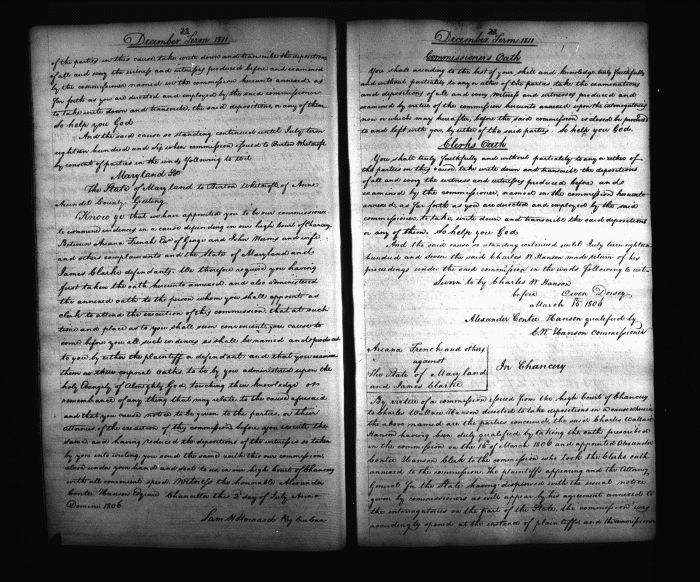 22
December Term 1811.
of the parties in this cause take write down and transcribe the depositions
of all and every the witness and witnesses produced before and examined
by the commissioner named in the commission hereunto annexed, as
far forth as you are directed and employed by the said commissioner
to take write down and transcribe, the said depositions, or any of them.
So help you God
And the said cause so standing continued until July term
eighteen hundred and six when commission issued to Burton Whetcroft
by consent of parties in the words following to wit
Maryland Sc
The State of Maryland to Burton Whetcroft of Anne
Arundel County. Greeting.
Know ye that we have appointed you to be our commissioner
to examine evidences in a cause depending in our high court of Chancery,
Between Ariana French Exr of George and John Mann and wife
and others complainants and the State of Maryland and
James Clarke defendants. We therefore require you having
first taken the oath hereunto annexed, and also administered
the annexed oath to the person whom you shall appoint as
clerk to attend the execution of this commission, that at such
time and place as to you shall seem convenient, you cause to
come before you all such evidences as shall be named and produced
to you by either the plaintiff or defendant: and that you examine
them on their corporal oaths, to be by you administered upon the
holy Evangely of Almighty God, touching their knowledge or
remembrance of any thing that may relate to the cause aforesaid
and that you cause notice to be given to the parties, or their
attornies of the execution of this commission before you execute the
same, and having reduced the depositions of the witnesses so taken
by you into writing, you send the same with this our commission
close under your hand and seal to us in our high court of Chancery
with all convenient speed. Witness the honorable Alexander
Contee Hanson Esquire Chancellor this 2d day of July Anno
Domini 1806
Sam H Howard Reg Cur Can
22
December Term 1811.
Commissioners Oath
You shall according to the best of your skill and knowledge, truly faithfully
and without partiality to any or either of the parties take the examinations
and depositions of all and every witness and witnesses produced and
examined by virtue of the commission hereunto annexed upon the interrogatories
now or which may hereafter, before the said commission is closed be produced
to and left with you, by either of the said parties. So help you God.
Clerks Oath
You shall truly faithfully and without partiality to any or either of
the parties in this cause, take write down and transcribe the depositions
of all and every the witness and witnesses produced before and
examined by the commissioner, named in the commission hereunto
annexed, as far forth as you are directed and employed by the said
commissioner, to take, write down and transcribe the said depositions
or any of them. So help you God
And the said cause so standing continued until July term eighteen
hundred and seven the said Charles W. Hanson made return of his
proceedings under the said commission in the words following to wit:
Sworn to by Charles W. Hanson
before Owen Dorsey
March 15th 1806
Alexander Contee Hanson qualified by
C. W. Hanson commissioner
Ariana French and others
against
The State of Maryland
and James Clarke
In Chancery
By virtue of a commission issued from the high court of Chancery
to Charles Wallace Hanson directed to take depositions in a cause wherein
the above named are the parties concerned, the said Charles Wallace
Hanson having been duly qualified by taking the oath prescribed
in the commission on the 15th of March 1806 and appointed Alexander
Contee Hanson Clerk to the commission who took the Clerks oath
annexed to the commission. The plaintiffs appearing and the Attorney
General for the State having dispensed with the usual notice
given by commissioners as will appear by his agreement annexed to
the interrogatories on the part of the State, the commission was
accordingly opened at the instance of plaintiffs and the commissioner